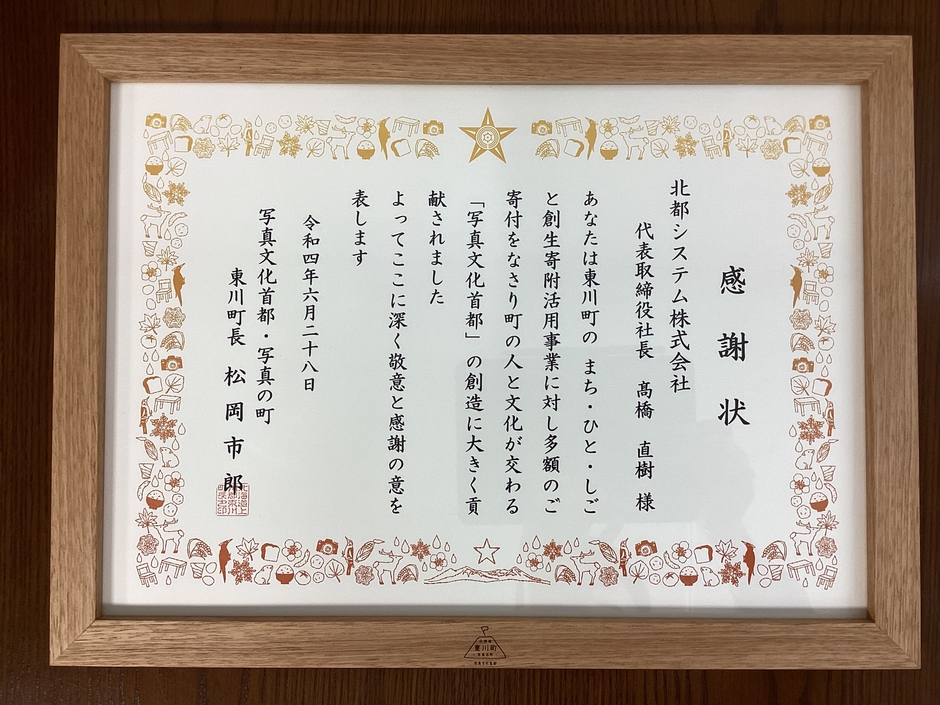 感謝状
北都システム株式会社
代表取締役社長 髙橋 直樹 様
あなたは東川町の まち・ひと・しご
と創生寄附活用事業に対し多額のご
寄付をなさり町の人と文化が交わる
「写真文化首都」の創造に大きく貢
献されました
よってここに深く敬意と感謝の意を
表します
令和四年六月二十八日
写真文化首都・写真の町
東川町長 松岡市郎
東川町